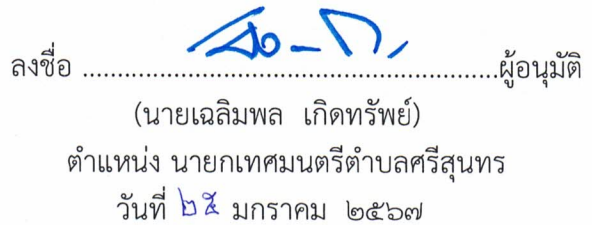 ลงชื่อ ............................................................ผู้อนุมัติ
(นายเฉลิมพล เกิดทรัพย์)
ตำแหน่ง นายกเทศมนตรีตำบลศรีสุนทร
วันที่ ๒๕ มกราคม ๒๕๖๗